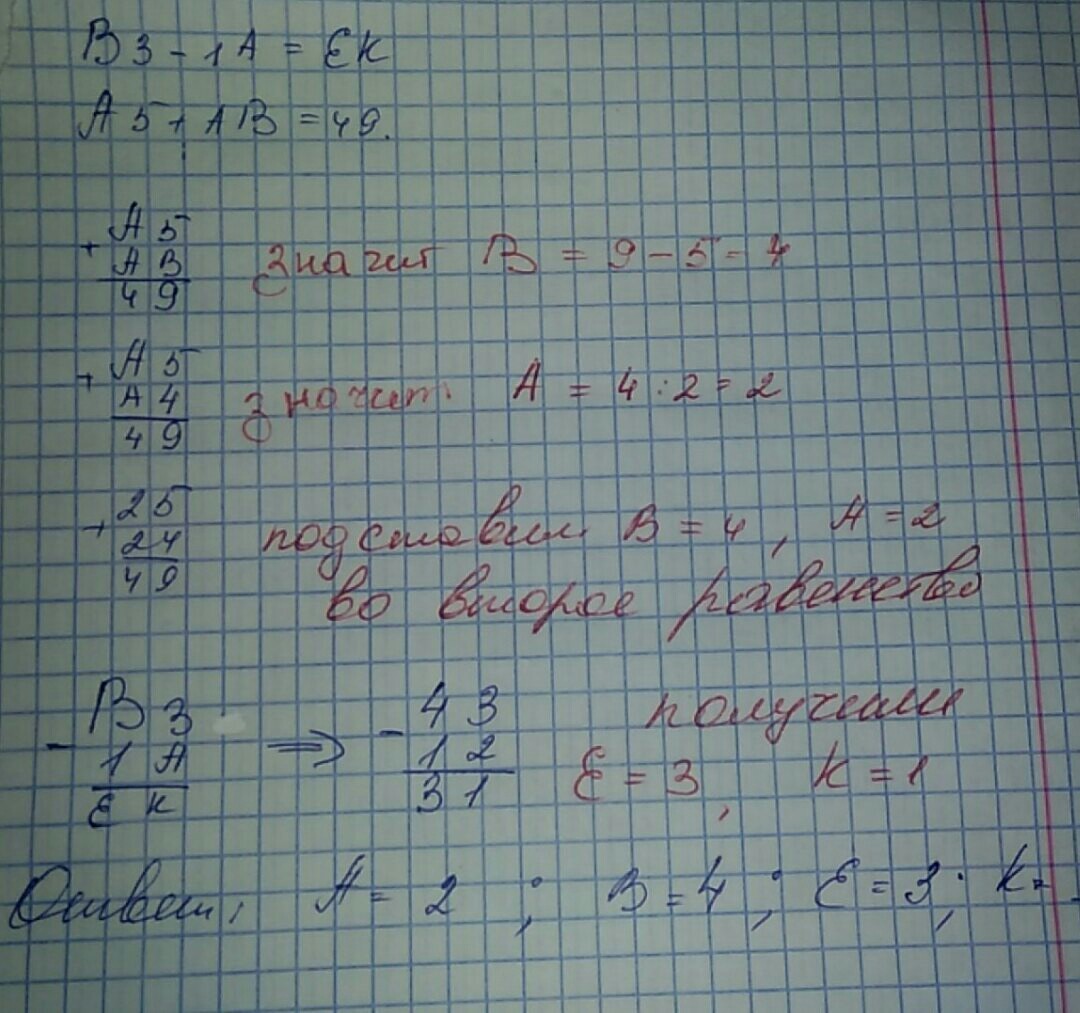 В3 - 1А = ЕК
А5 + АВ = 49.
+ А5
АВ
49
значит В = 9 - 5 = 4
+ А5
А4
49
значит А = 4 : 2 = 2
+ 25
24
49
подставим В = 4, А = 2
во второе равенство
- В3
1А
ЕК
⇒
- 43
12
31
получили
Е = 3, К = 1
Ответ: А = 2 ; В = 4 ; Е = 3; К =